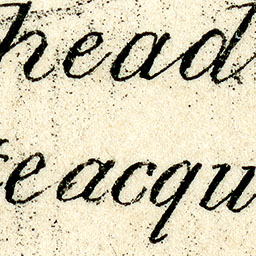 head
eacqu